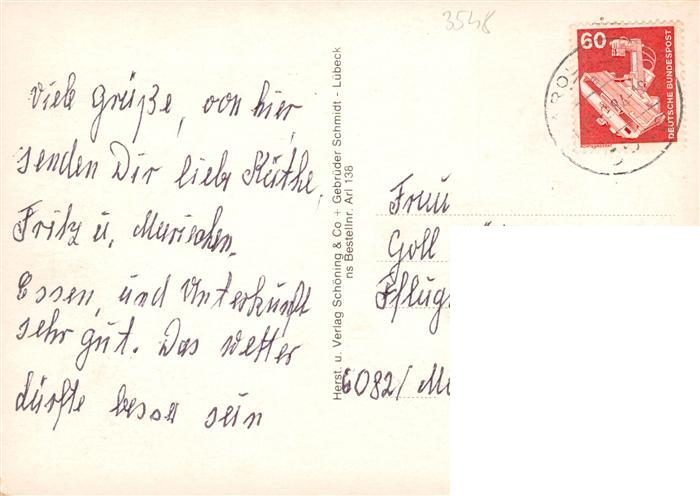 3548
60
DEUTSCHE BUNDESPOST
Viele Grüße, von hier,
senden Dir liebe Käthe,
Fritz u. Mariechen.
Essen, und Unterkunft
sehr gut. Das Wetter
dürfte besser sein
Herst. u. Verlag Schöning & Co + Gebrüder Schmidt - Lübeck
ns Bestellnr. Arl 138
Frau
Goll
Pflug
6082/ Mö